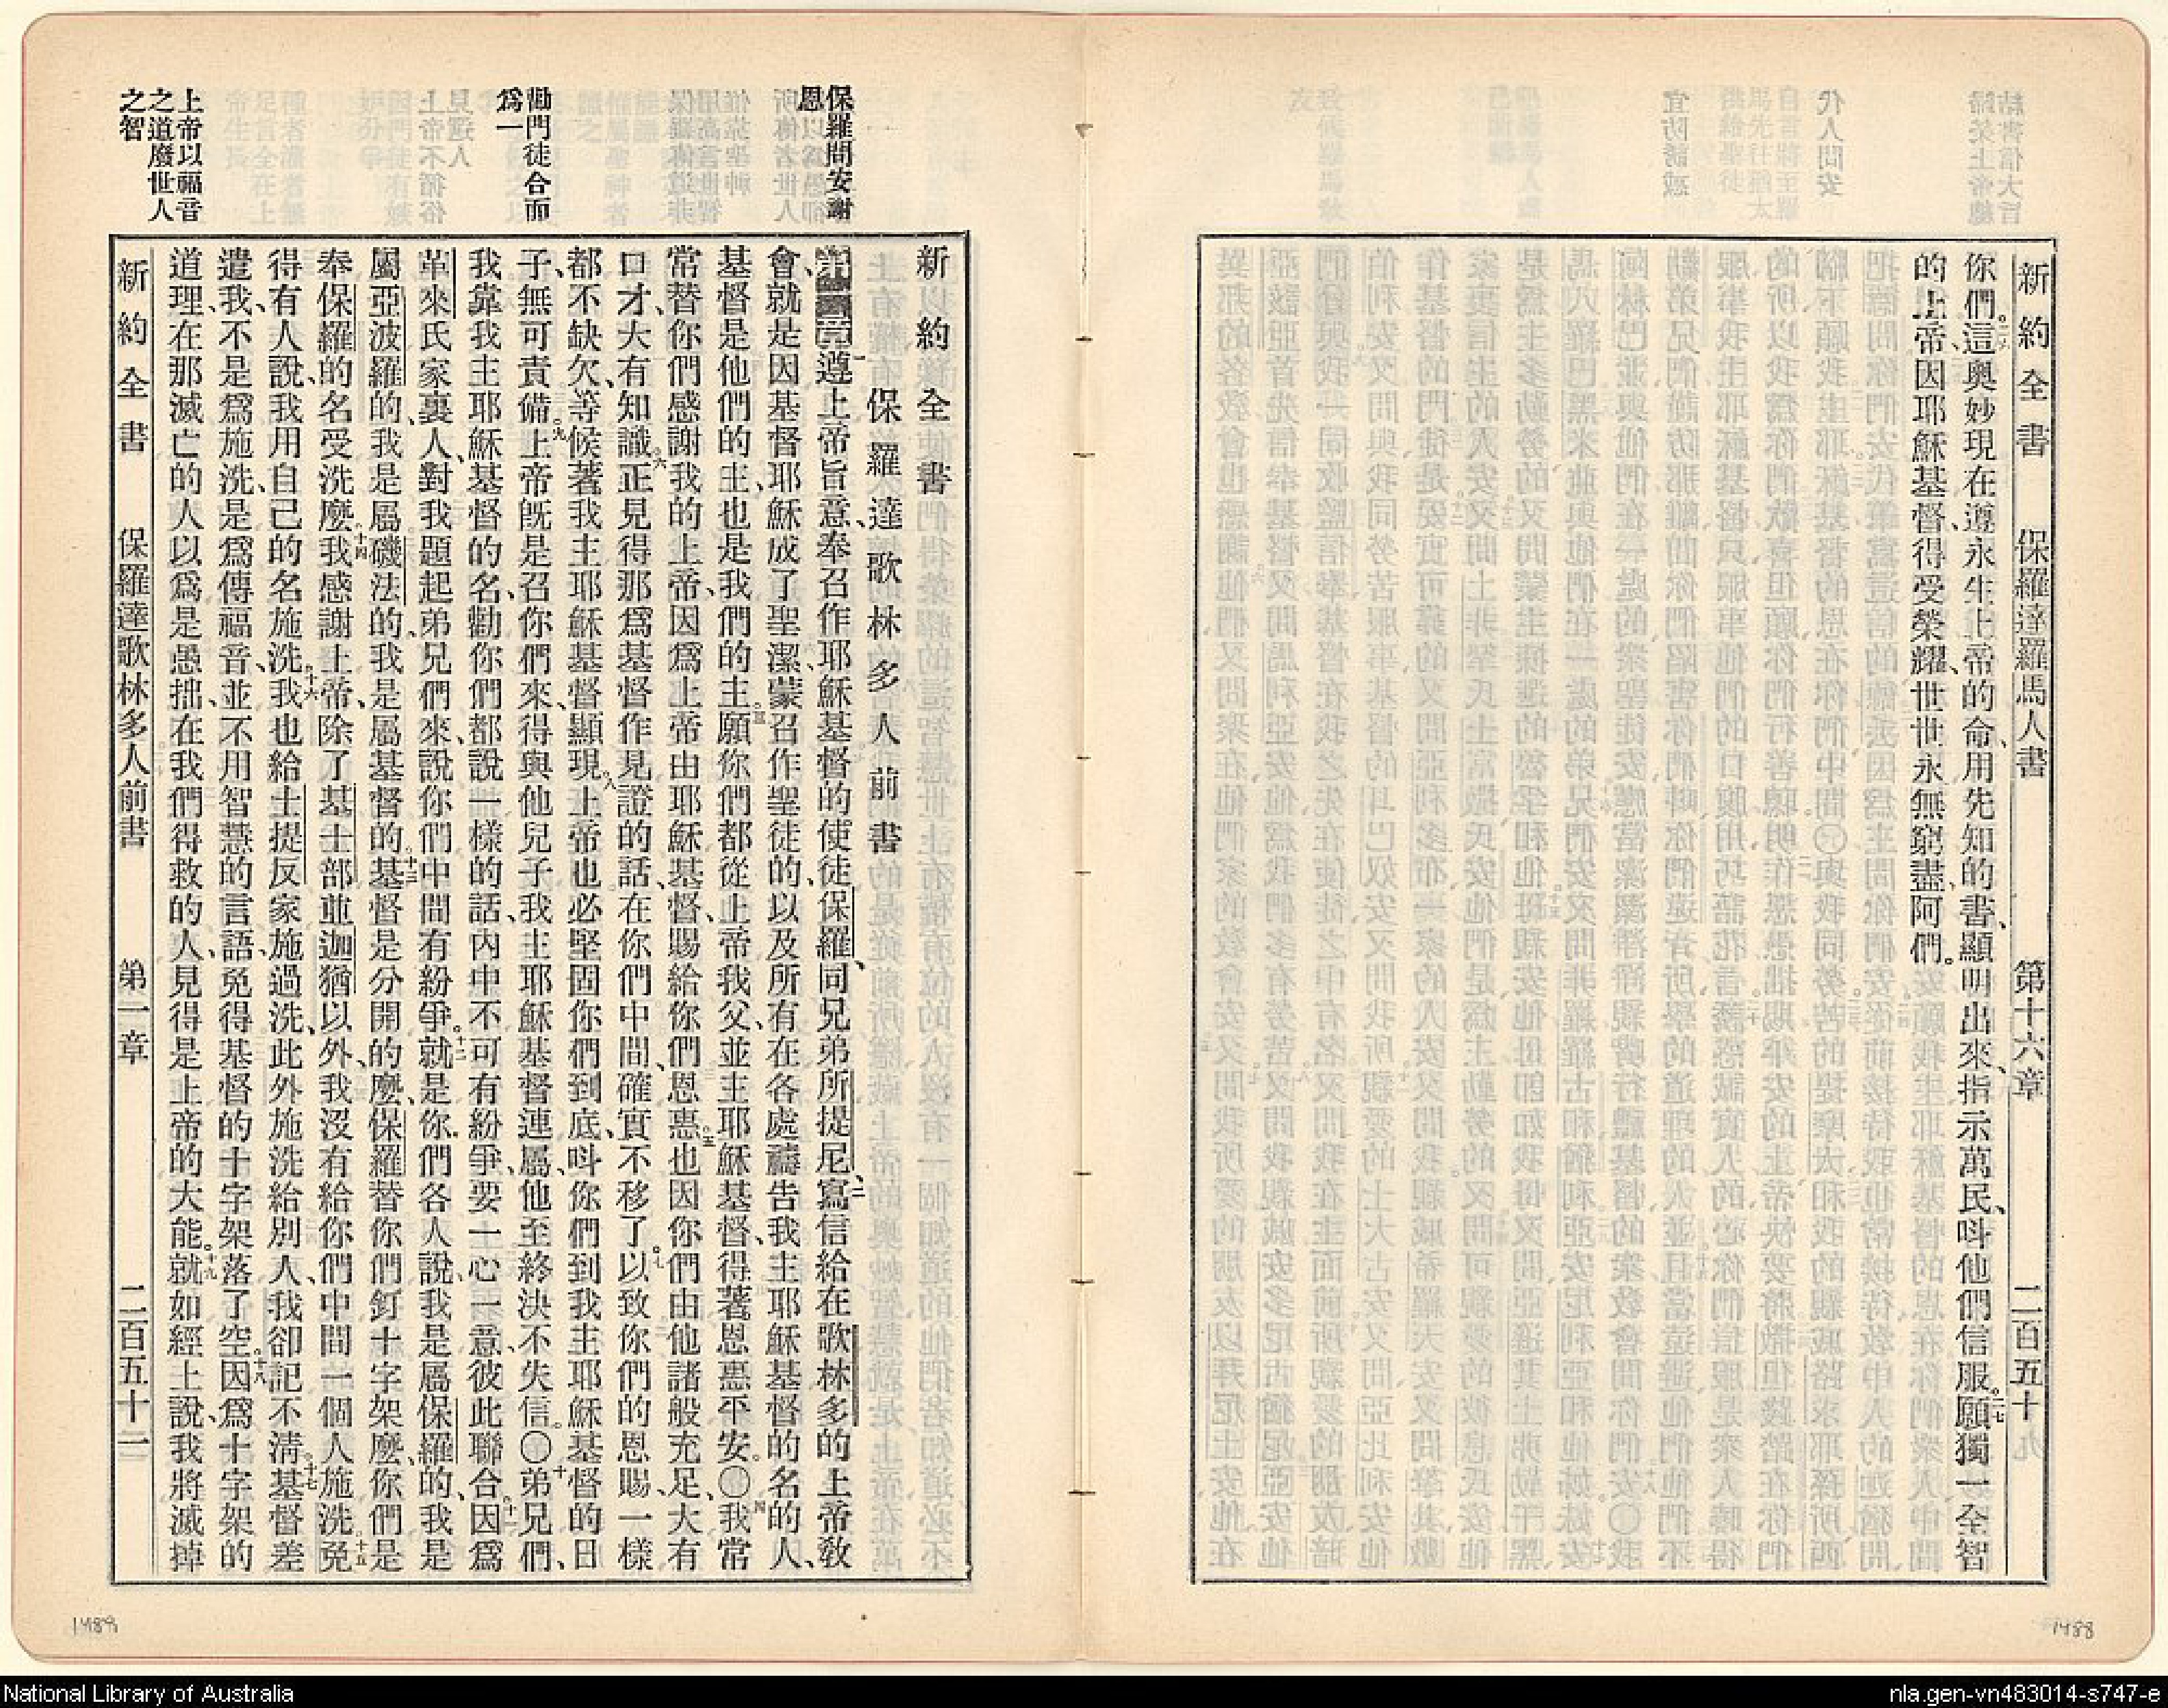 新約全書　保羅達羅馬人書　第十六章　二百五十
你們。二六這奧妙現在遵永生上帝的命、用先知的書、顯明出來、指示萬民、呌他們信服。二七願獨一全智
的上帝、因耶穌基督、得受榮耀、世世永無窮盡、阿們。
保羅問安謝
恩
勸門徒合而
爲一
上帝以福音
之道廢世人
之智
新約全書
保羅達歌林多人前書
一遵上帝旨意、奉召作耶穌基督的使徒保羅、同兄弟所提尼、二寫信給在歌林多的上帝敎
會、就是因基督耶穌成了聖潔、蒙召作聖徒的、以及所有在各處禱告我主耶穌基督的名的人、
基督是他們的主、也是我們的主。三願你們都從上帝我父、並主耶穌基督、得著恩惠平安。〇四我常
常替你們感謝我的上帝、因爲上帝由耶穌基督、賜給你們恩惠。五也因你們由他諸般充足、大有
口才、大有知識。六正見得那爲基督作見證的話、在你們中間、確實不移了。七以致你們的恩賜、一樣
都不缺欠、等候著我主耶穌基督顯現。八上帝也必堅固你們到底、呌你們到我主耶穌基督的日
子、無可責備。九上帝旣是召你們來、得與他兒子我主耶穌基督連屬、他至終決不失信。〇十弟兄們、
我靠我主耶穌基督的名、勸你們都說一樣的話、內中不可有紛爭、要一心一意、彼此聯合。十一因爲
革來氏家裏人、對我題起弟兄們來、說你們中間有紛爭。十二就是你們各人說、我是屬保羅的、我是
屬亞波羅的、我是屬磯法的、我是屬基督的。十三基督是分開的麼、保羅替你們釘十字架麼、你們是
奉保羅的名受洗麼。十四我感謝上帝、除了基士部並迦猶以外、我沒有給你們中間一個人施洗。十五免
得有人說、我用自己的名施洗。十六我也給士提反家施過洗、此外施洗給別人、我卻記不淸。十七基督差
遣我、不是爲施洗、是爲傳福音、並不用智慧的言語、免得基督的十字架落了空。十八因爲十字架的
道理、在那滅亡的人以爲是愚拙、在我們得救的人、見得是上帝的大能。十九就如經上說、我將滅掉
新約全書　保羅達歌林多人前書　第一章　二百五十一
1489
1488
National Library of Australia
nla.gen-vn483014-s747-e